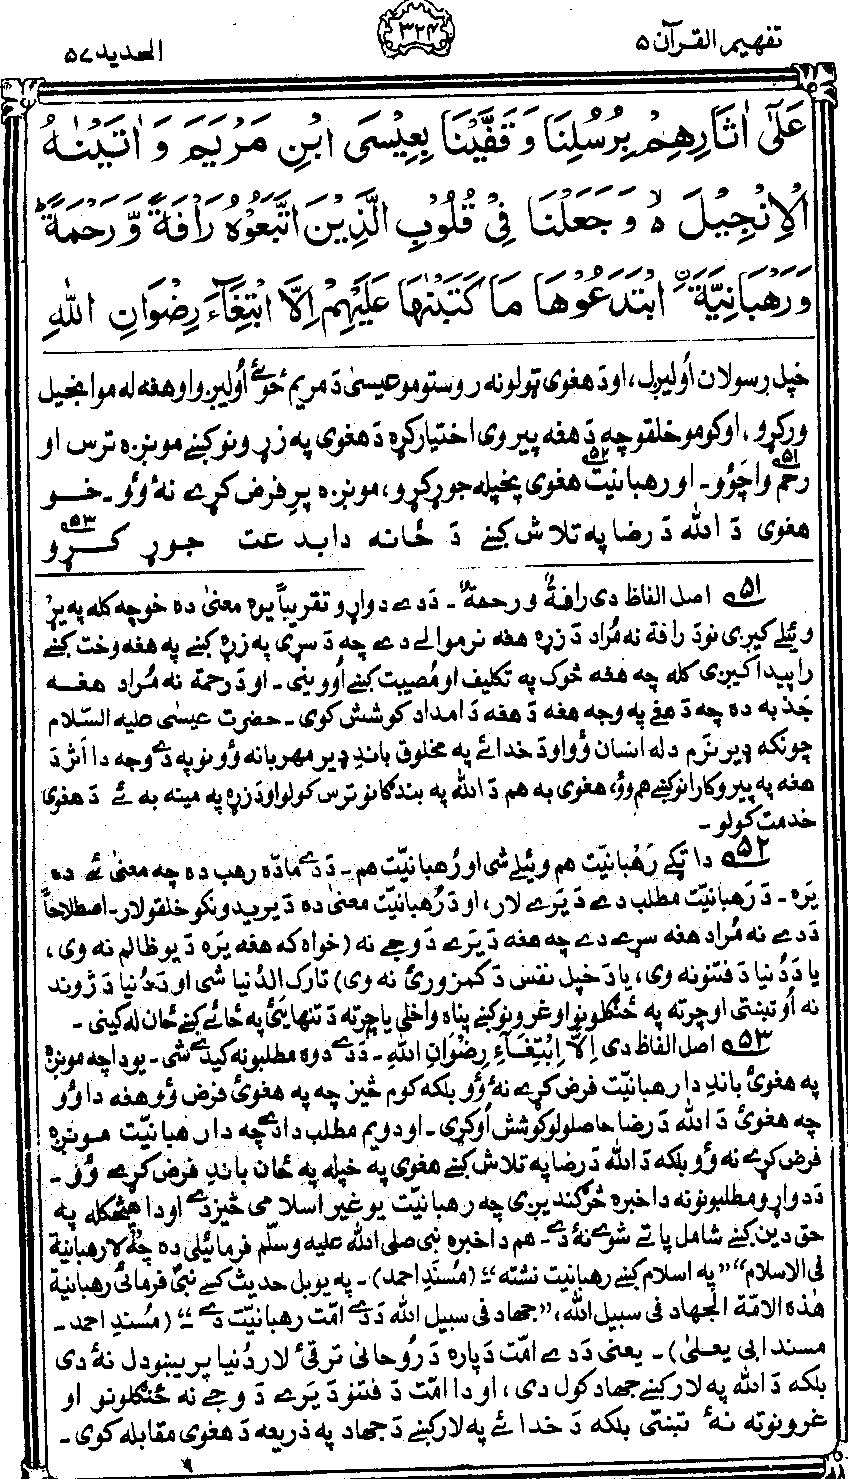 تفهيم القرآن ۵
۳۲۴
الحديد ۵۷
عَلٰٓى اٰثَارِهِمْ بِرُسُلِنَا وَقَفَّيْنَا بِعِيْسَى ابْنِ مَرْيَمَ وَاٰتَيْنٰهُ
الْاِنْجِيْلَ ۙ۬ وَجَعَلْنَا فِيْ قُلُوْبِ الَّذِيْنَ اتَّبَعُوْهُ رَاْفَةً وَّرَحْمَةً ؕ
وَرَهْبَانِيَّةَ ۨ ابْتَدَعُوْهَا مَا كَتَبْنٰهَا عَلَيْهِمْ اِلَّا ابْتِغَآءَ رِضْوَانِ اللّٰهِ
خپل رسولان أوليږل، اود هغوى ټولونه روستو مو عيسىٰ دَ مريم ځوئے أوليږو او هغه له مو انجيل
ورکړو، اوکومو خلقو چه دَ هغه پيروى اختيار کړه دَ هغوى په زړونو کښے مونږه ترس او
رحم واچَوُو۵۱۔ او رهبانيت۵۲ هغوى پخپله جوړ کړو، مونږه پرِ فرض کړے نهٔ وُو۔ خو
هغوى دَ الله دَ رضا په تلاش کښے دَ ځانه دا بدعت جوړ کړو۵۳
۵۱ اصل الفاظ دى رافةً و رحمةً۔ دَدے دواړو تقريباً يوه معنىٰ ده خو چه کله په يوځائے
وئيلے کيږى نو دَ رافة نه مُراد دَ زړه هغه نرم والے دے چه دَ سړى په زړه کښے په هغه وخت کښے
راپيدا کيږى کله چه هغه څوک په تکليف او مُصيبت کښے أووينى۔ اودَ رحمة نه مُراد هغه
جذبه ده چه دَ هغے په وجه هغه دَ هغه دَ امداد کوشش کوى۔ حضرت عيسىٰ عليه السّلام
چونکه ډير نرم دله انسان وُو اودَ خدائے په مخلوق باندِ ډير مهربانه وُو نو په دے وجه دا اثر دَ
هغه په پيروکارانو کښے هم وو، هغوى به هم دَ الله په بندګانو ترس کولو اودَ زړه په مينه به ئے دَ هغوى
خدمت کولو۔
۵۲ دا ټکے رَهْبانيّت هم وئيلے شى او رُهبانيّت هم۔ دَدے مادّه رهب ده چه معنىٰ ئے ده
يَره۔ دَ رَهبانيّت مطلب دے دَ يَرے لار، اودَ رُهبانيّت معنىٰ ده دَ يريدونکو خلقو لار۔ اصطلاحاً
دَدے نه مُراد هغه سړے دے چه هغه دَ يَرے دَ وجے نه (خواه که هغه يَره دَ يو ظالم نه وى،
يا دَ دُنيا دَ فتنو نه وى، يا دَ خپل نفس دَ کمزورئ نه وى) تارک الدُنيا شى او دَ دُنيا دَ ژوند
نه أوتښتى او چرته په ځنګلونو او غرونو کښے پناه واخلى يا چرته دَ تنهايئ په ځائے کښے ځان له کينى۔
۵۳ اصل الفاظ دى اِلَّا ابْتِغَآءَ رِضْوَانِ اللهِ۔ دَدے دوه مطلبونه کيدے شى۔ يو دا چه مونږه
په هغوئ باندِ دا رهبانيّت فرض کړے نهٔ وُو بلکه کوم څيز چه په هغوئ فرض وُو هغه دا وُو
چه هغوئ دَ الله دَ رضا حاصلولو کوشش أوکړى۔ او دويم مطلب دا دے چه دا رهبانيّت مونږه
فرض کړے نه وُو بلکه دَ الله دَ رضا په تلاش کښے هغوى په خپله په ځان باندِ فرض کړے وُو۔
دَ دواړو مطلبونو نه دا خبره څرګنديږى چه رهبانيّت يو غير اسلامى څيز دے او دا هيڅکله په
حق دين کښے شامل پاتے شوے نهٔ دے۔ هم دا خبره نبى صلى الله عليه وسلّم فرمائيلى ده چه لا رهبانية
فى الاسلام" "په اسلام کښے رهبانيت نشته" (مُسندِ احمد)۔ په يو بل حديث کښے نبىؐ فرمائى رهبانية
هٰذه الامّة الجهاد فى سبيل الله، "جهاد فى سبيل الله دَدے امّت رهبانيّت دے"۔ (مُسندِ احمد۔
مسند ابى يعلىٰ)۔ يعنى دَدے امّت دَپاره دَ رُوحانى ترقئ لار دُنيا پريښودل نهٔ دى
بلکه دَ الله په لار کښے جهاد کول دى، او دا امّت دَ فتنو دَ يَرے دَ وجے نه ځنګلونو او
غرونو ته نهٔ تښتى بلکه دَ خدائے په لار کښے دَ جهاد په ذريعه دَ هغوى مقابله کوى۔